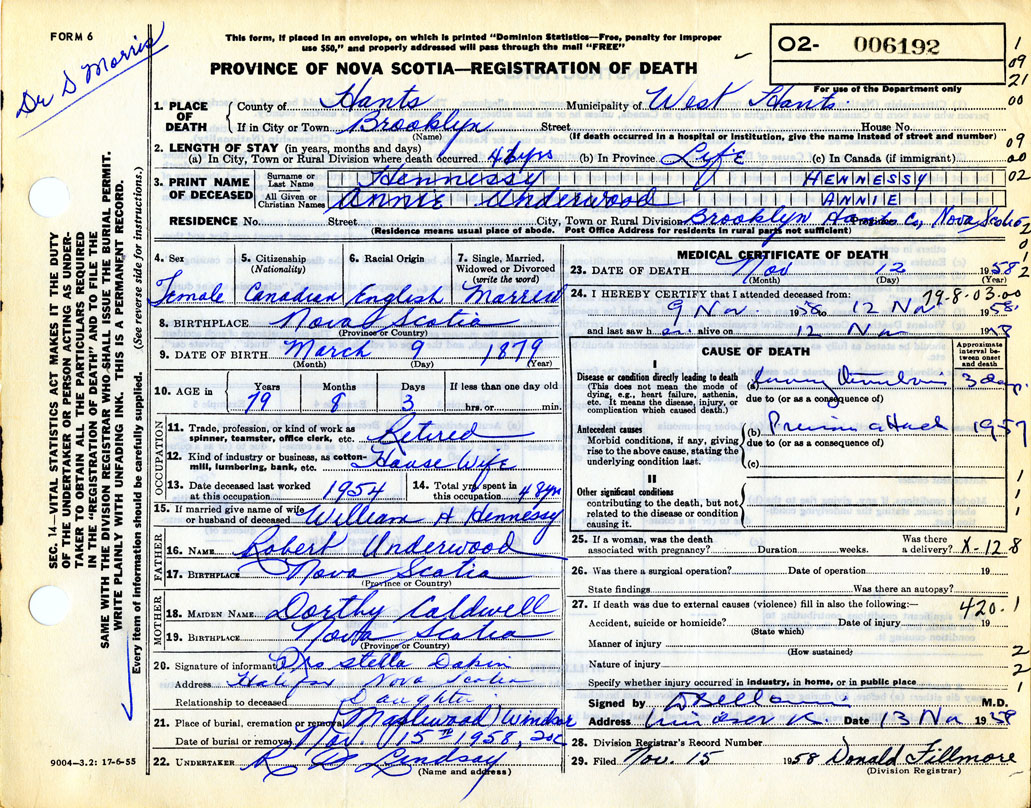 FORM 6
Dr D Morris
This form, if placed in an envelope, on which is printed "Dominion Statistics—Free, penalty for improper
use $50," and properly addressed will pass through the mail "FREE"
O2- 006192
For use of the Department only
PROVINCE OF NOVA SCOTIA—REGISTRATION OF DEATH
1
09
21
00
09
00
02
1. PLACE OF DEATH County of Hants Municipality of West Hants.
If in City or Town Brooklyn Street House No.
(Name) (If death occurred in a hospital or institution, give the name instead of street and number)
2. LENGTH OF STAY (in years, months and days)
(a) In City, Town or Rural Division where death occurred yrs (b) In Province Life (c) In Canada (if immigrant)
3. PRINT NAME OF DECEASED
Surname or Last Name Hennessy HENNESSY
All Given or Christian Names Annie Underwood ANNIE
RESIDENCE No. Street City, Town or Rural Division Brooklyn Hants Co, Nova Scotia
(Residence means usual place of abode. Post Office Address for residents in rural parts not sufficient)
SEC. 14—VITAL STATISTICS ACT MAKES IT THE DUTY
OF THE UNDERTAKER OR PERSON ACTING AS UNDER-
TAKER TO OBTAIN ALL THE PARTICULARS REQUIRED
IN THE "REGISTRATION OF DEATH" AND TO FILE THE
SAME WITH THE DIVISION REGISTRAR WHO SHALL ISSUE THE BURIAL PERMIT.
WRITE PLAINLY WITH UNFADING INK. THIS IS A PERMANENT RECORD.
Every item of information should be carefully supplied. (See reverse side for instructions.)
4. Sex Female
5. Citizenship (Nationality) Canadian
6. Racial Origin English
7. Single, Married, Widowed or Divorced (write the word) Married
8. BIRTHPLACE Nova Scotia
(Province or Country)
9. DATE OF BIRTH March 9 1879
(Month) (Day) (Year)
10. AGE in Years 79 Months 8 Days 3 If less than one day old hrs. or min.
OCCUPATION
11. Trade, profession, or kind of work as spinner, teamster, office clerk, etc. Retired
12. Kind of industry or business, as cotton-mill, lumbering, bank, etc. House Wife
13. Date deceased last worked at this occupation 1954
14. Total yrs. spent in this occupation 48 yrs
15. If married give name of wife or husband of deceased William H Hennessy
FATHER
16. NAME Robert Underwood
17. BIRTHPLACE Nova Scotia
(Province or Country)
MOTHER
18. MAIDEN NAME Dorthy Caldwell
19. BIRTHPLACE Nova Scotia
(Province or Country)
20. Signature of informant Mrs Stella Dakin
Address Halifax Nova Scotia
Relationship to deceased Daughter
21. Place of burial, cremation or removal Maplewood Windsor
Date of burial or removal Nov. 15th 1958,
22. UNDERTAKER Lindsay
(Name and address)
9004—3.2: 17-6-55
MEDICAL CERTIFICATE OF DEATH
23. DATE OF DEATH Nov 12 1958
(Month) (Day) (Year)
24. I HEREBY CERTIFY that I attended deceased from:
79-8-03.00
9 Nov. 1958 to 12 Nov 1958
and last saw h er alive on 12 Nov 1958
CAUSE OF DEATH
Approximate interval between onset and death
I
Disease or condition directly leading to death
(This does not mean the mode of dying, e.g., heart failure, asthenia, etc. It means the disease, injury, or complication which caused death.)
(a) 3 days
due to (or as a consequence of)
Antecedent causes
Morbid conditions, if any, giving rise to the above cause, stating the underlying condition last.
(b) Previous attack 1957
due to (or as a consequence of)
(c)
II
Other significant conditions
contributing to the death, but not related to the disease or condition causing it.
25. If a woman, was the death associated with pregnancy? Duration weeks. Was there a delivery? X-12-8
26. Was there a surgical operation? Date of operation 19
State findings Was there an autopsy?
27. If death was due to external causes (violence) fill in also the following:—
420.1
Accident, suicide or homicide? Date of injury 19
(State which)
Manner of injury
(How sustained)
Nature of injury
Specify whether injury occurred in industry, in home, or in public place
Signed by M.D.
Address Windsor Date 13 Nov 1958
28. Division Registrar's Record Number
29. Filed Nov. 15 1958 Donald Fillmore
(Division Registrar)